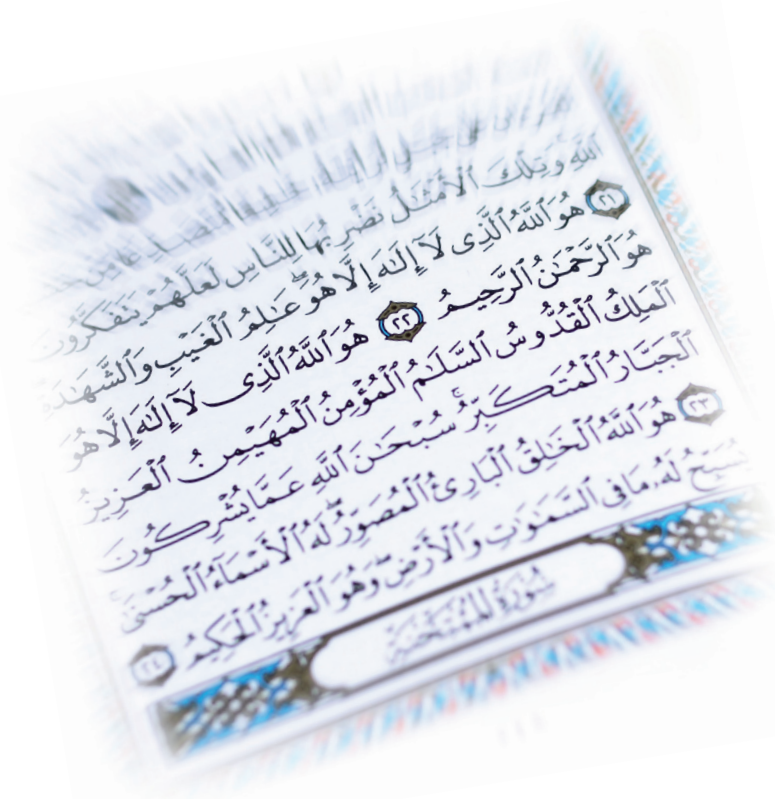 ٱللَّهِ وَتِلْكَ ٱلْأَمْثَٰلُ نَضْرِبُهَا لِلنَّاسِ لَعَلَّهُمْ يَتَفَكَّرُونَ
٢١ هُوَ ٱللَّهُ ٱلَّذِى لَآ إِلَٰهَ إِلَّا هُوَۖ عَٰلِمُ ٱلْغَيْبِ وَٱلشَّهَٰدَةِ
هُوَ ٱلرَّحْمَٰنُ ٱلرَّحِيمُ ٢٢ هُوَ ٱللَّهُ ٱلَّذِى لَآ إِلَٰهَ إِلَّا هُوَ
ٱلْمَلِكُ ٱلْقُدُّوسُ ٱلسَّلَٰمُ ٱلْمُؤْمِنُ ٱلْمُهَيْمِنُ ٱلْعَزِيزُ
ٱلْجَبَّارُ ٱلْمُتَكَبِّرُۚ سُبْحَٰنَ ٱللَّهِ عَمَّا يُشْرِكُونَ
٢٣ هُوَ ٱللَّهُ ٱلْخَٰلِقُ ٱلْبَارِئُ ٱلْمُصَوِّرُۖ لَهُ ٱلْأَسْمَآءُ ٱلْحُسْنَىٰۚ
يُسَبِّحُ لَهُۥ مَا فِى ٱلسَّمَٰوَٰتِ وَٱلْأَرْضِۖ وَهُوَ ٱلْعَزِيزُ ٱلْحَكِيمُ ٢٤
سُورَةُ ٱلْمُمْتَحَنَةِ